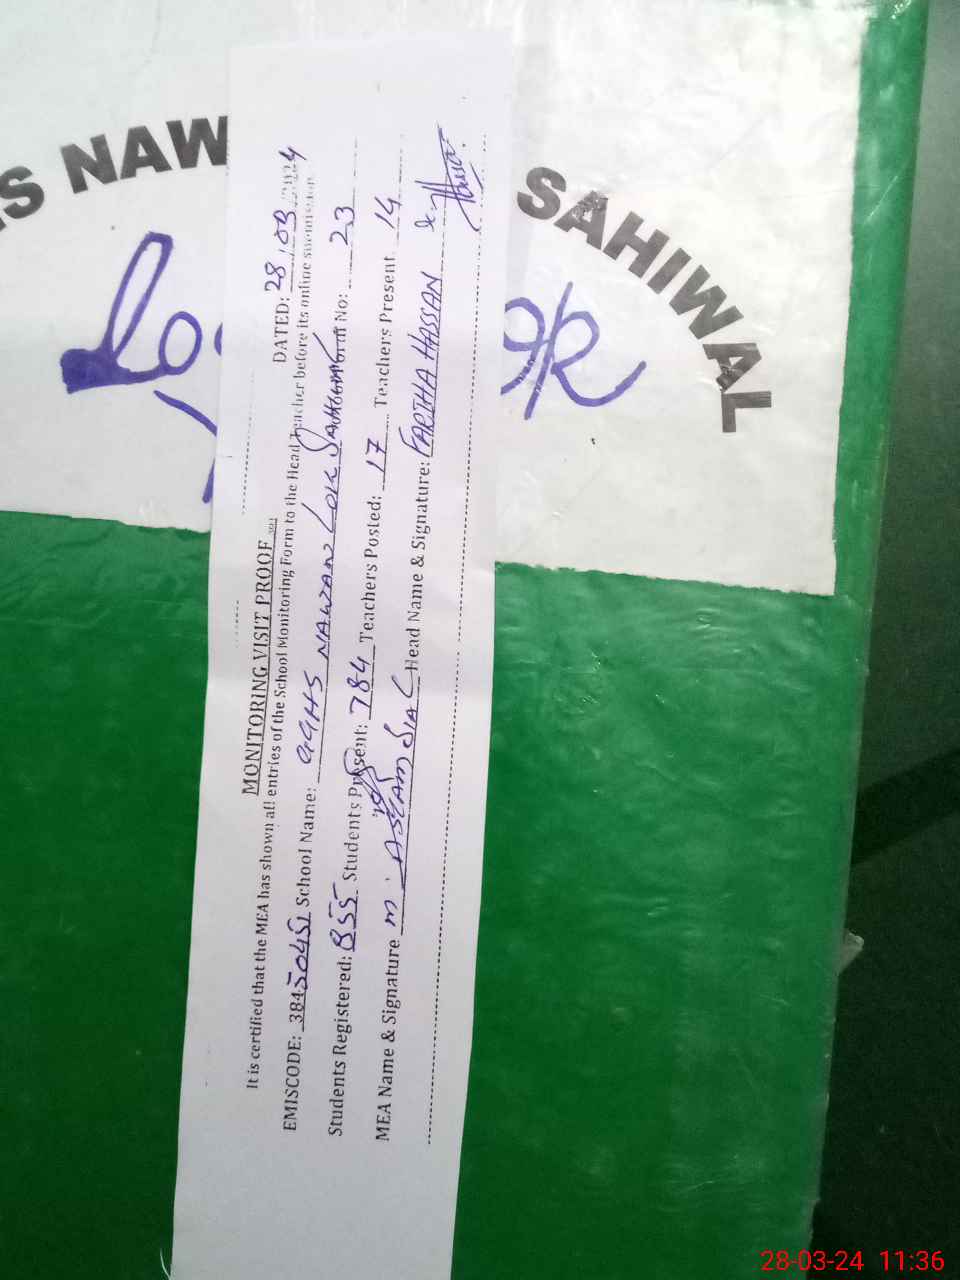 S NAW SAHIWAL
MONITORING VISIT PROOF
DATED: 28.03.2024
It is certified that the MEA has shown all entries of the School Monitoring Form to the Head Teacher before its online submission.
EMISCODE: 38450451 School Name: GGHS NAWAN LOK SAHIWAL No: 23
Students Registered: 855 Students Present: 784 Teachers Posted: 17 Teachers Present 14
MEA Name & Signature M. ASLAM SIAL Head Name & Signature: FARIHA HASSAN
28-03-24 11:36